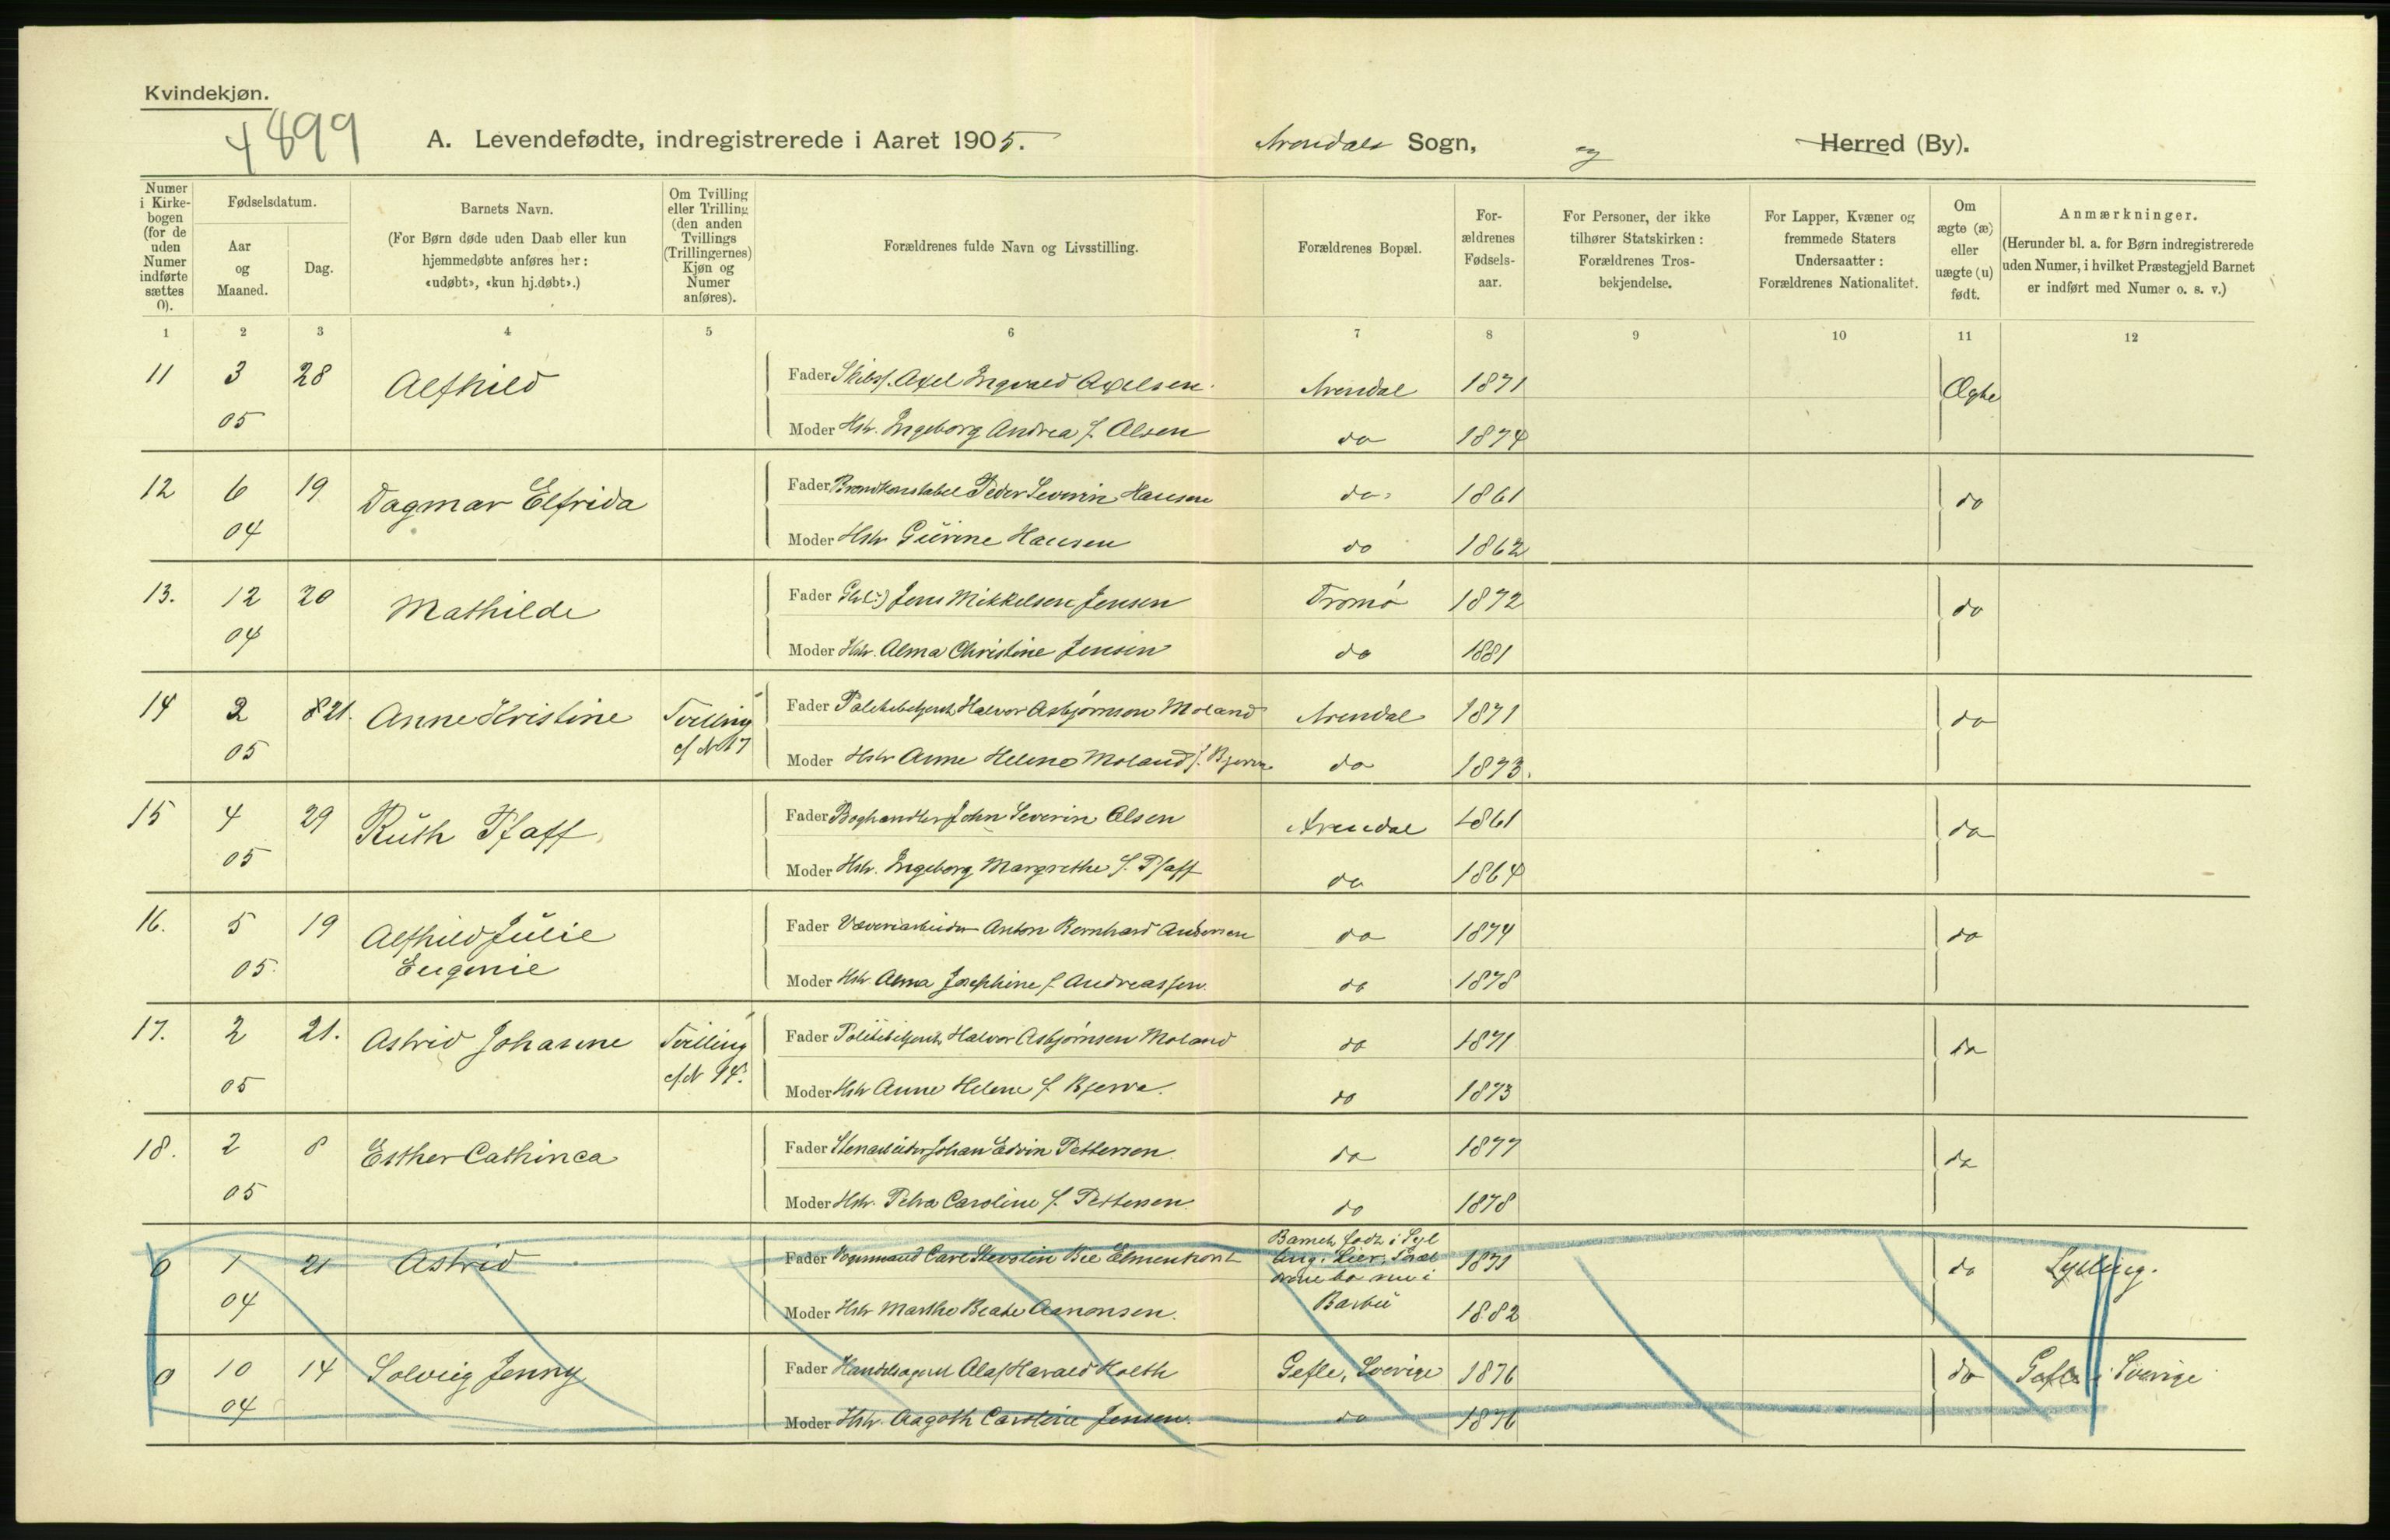 Kvindekjøn.
4899
A. Levendefødte, indregistrerede i Aaret 1905. Arendals Sogn, og Herred (By).
Numer i Kirkebogen (for de uden Numer indførte sættes 0).
Fødselsdatum.
Aar og Maaned.
Dag.
Barnets Navn.
(For Børn døde uden Daab eller kun hjemmedøbte anføres her: «udøbt», «kun hj.døbt».)
Om Tvilling eller Trilling (den anden Tvillings (Trillingernes) Kjøn og Numer anføres).
Forældrenes fulde Navn og Livsstilling.
Forældrenes Bopæl.
For-ældrenes Fødsels-aar.
For Personer, der ikke tilhører Statskirken: Forældrenes Tros-bekjendelse.
For Lapper, Kvæner og fremmede Staters Undersaatter: Forældrenes Nationalitet.
Om ægte (æ) eller uægte (u) født.
Anmærkninger.
(Herunder bl. a. for Børn indregistrerede uden Numer, i hvilket Præstegjeld Barnet er indført med Numer o. s. v.)
1 2 3 4 5 6 7 8 9 10 11 12
11 3 28 Alfhild Fader Skibsf. Axel Ingvald Axelsen Arendal 1871 Ægte
05 Moder Hstr. Ingeborg Andrea f. Olsen do 1874
12 6 19 Dagmar Elfrida Fader Brandkonstabel Peder Severin Hansen do 1861 do
04 Moder Hstr Gürine Hansen do 1862
13. 12 20 Mathilde Fader Jens Mikkelsen Jensen Tromø 1872 do
04 Moder Hstr. Alma Christine Jensen do 1881
14 2 8 21. Anne Kristine Tvilling Fader Politibetjent Halvor Asbjørnson Moland Arendal 1871 do
05 cf No 17 Moder Hstr Anne Helene Moland f. Bjerva do 1873.
15 4 29 Rüth Pfaff Fader Boghandler John Severin Olsen Arendal 1861 do
05 Moder Hstr. Ingeborg Margrethe f. Pfaff do 1864
16. 5 19 Alfhild Jülie Fader Væveriarbeider Anton Bernhard Andersen do 1874 do
05. Eugenie Moder Hstr Alma Josephine f Andreassen. do 1878
17. 2 21. Astrid Johanne Tvilling Fader Politibetjent Halvor Asbjørnsen Moland do 1871 do
05 cf N 14. Moder Hstr Anne Helene f. Bjerva. do 1873
18. 2 8 Esther Cathinca Fader Stenarbeider Johan Edvin Pettersen do 1877 do
05 Moder Hstr. Petra Caroline f. Pettersen. do 1878
0 1 21 Astrid Fader Carl Bie Barnet født i Syl
ling i Lier, Foræl
drene bo nu i 1871 do Sylling.
04 Moder Hstr Marthe Beate Aanonsen. Barbü 1882
0 10 14 Solveig Jenny Fader Handelsagent Olaf Harald Holth Gefle, Sverige 1876 do Gefle i Sverige
04 Moder Hstr. Aagoth Caroline Jensen. do 1876